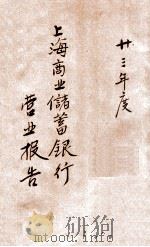 廿三年度
上海商业儲蓄銀行
营业报告